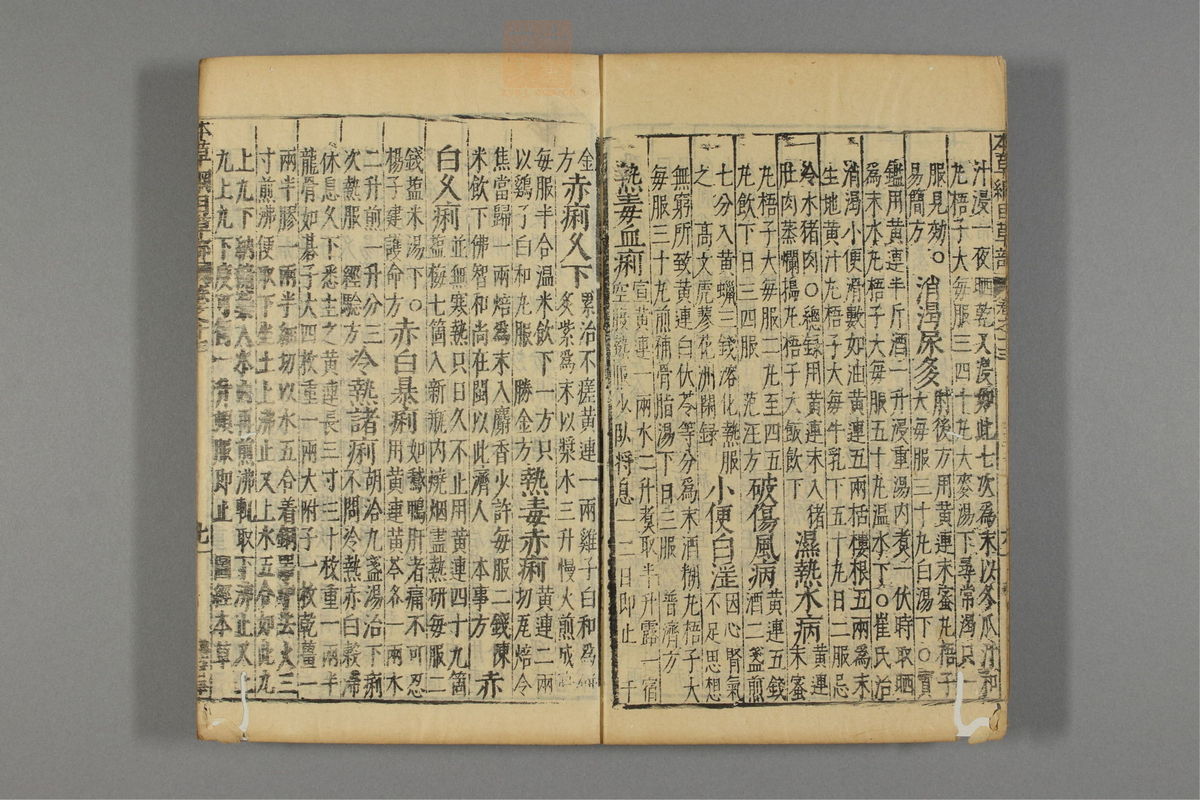 汁浸一夜晒乾又浸如此七次為末以冬瓜汁和
丸梧子大每服三四十丸大麥湯下尋常渴只一
服見効○消渴尿多肘後方用黃連末蜜丸梧子
易簡方大每服三十丸白湯下○寶
鑑用黃連半斤酒一升浸重湯內煮一伏時取晒
為末水丸梧子大每服五十丸溫水下○崔氏治
消渴小便滑數如油黃連五兩栝樓根五兩為末
生地黃汁丸梧子大每牛乳下五十丸日二服忌
冷水猪肉○總録用黃連末入猪濕熱水病黃連末蜜
肚肉蒸爛搗丸梧子大飯飲下
丸梧子大每服二丸至四五破傷風病黃連五錢
丸飲下日三四服 范汪方酒二盞煎
七分入黃蠟三錢溶化熱服小便白淫因心腎氣
之 高文虎蓼花洲閒録不足思想
無窮所致黃連白伏苓等分為末酒糊丸梧子大
每服三十丸煎補骨脂湯下日三服 普濟方
熱毒血痢宣黃連一兩水二升煮取半升露一宿
空腹熱服少臥將息一二日即止 千
金赤痢久下累治不瘥黃連一兩雞子白和為餅
方炙紫為末以漿水三升慢火煎成
每服半合温米飲下一方只熱毒赤痢黃連二兩
以鷄子白和丸服 勝金方切瓦焙令
焦當歸一兩焙為末入麝香少許每服二錢陳
米飲下佛智和尚在閩以此濟人 本事方赤
白久痢並無寒熱只日久不止用黃連四十九箇
塩梅七箇入新瓶內燒烟盡熱研每服二
錢塩米湯下○赤白暴痢如鵞鴨肝者痛不可忍
楊子建護命方用黃連黃芩各一兩水
二升煎一升分三冷熱諸痢胡洽九盞湯治下痢
次熱服 經驗方不問冷熱赤白穀滯
休息久下悉主之黃連長三寸三十枚重一兩半
龍骨如碁子大四枚重一兩大附子一枚乾薑一
兩半膠一兩半細切以水五合着銅器中去火三
寸煎沸便取下坐土上沸止又上水五合如此九
上九下納諸藥入水內再煎沸輒取下沸止又上
九上九下度可得一升頓服即止 圖經本草